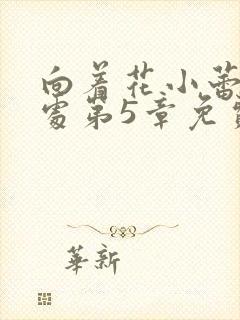 向着花小蕾
处第5章免费
華新